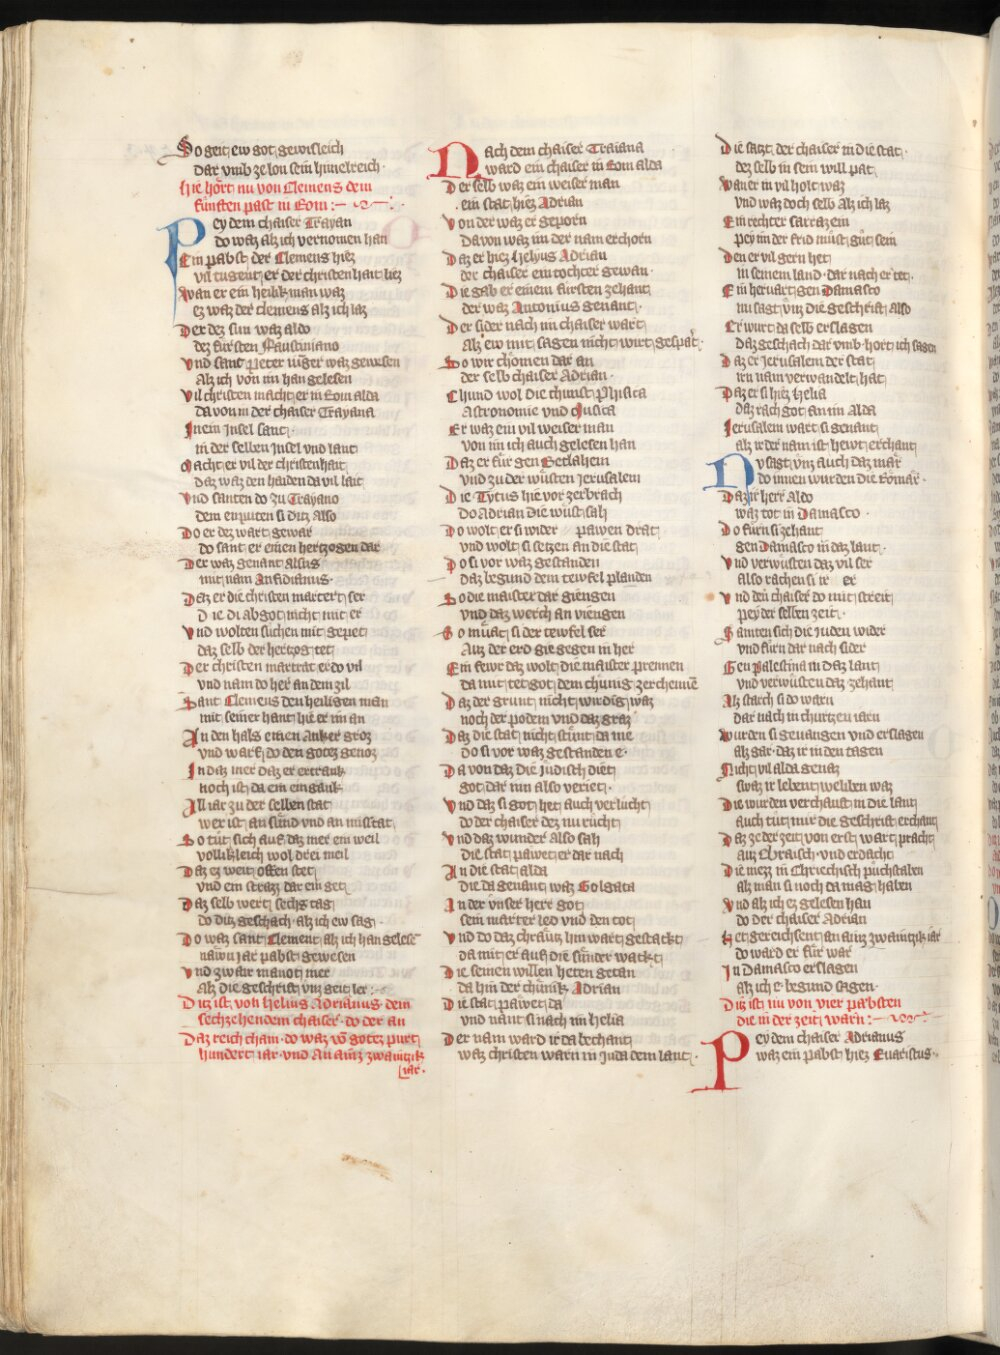 So geit ew got gewisleich
dar vmb ze lon sein himelreich ·
Hie hört nu von Clemens dem
fünften past in Rom :
Pey dem chaiser Trayan
do waz alz ich vernomen han
Ein pabst der Clemens hiez
vil tugent er der christenhait liez
Wan er ein heilik man waz
ez waz der clemens alz ich laz
Der dez sun waz aldo
dez fürsten Faustiniano
Vnd sant Peter iu̇ger waz gewesen
Alz ich von im han gelesen
Vil christen macht er in Rom alda
da von in der chaiser Trayana
In ein Insel sant ·
in der selben Insel vnd lant
Macht er vil der christenhait
daz waz den haiden da vil lait
Vnd santen do zu Trayano
dem enputen si ditz also
Do er dez wart gewar
do sant er einen hertzogen dar
Der waz genant Alsus
mit nam Anfidianus ·
Daz er die christen martert ser
Die di abgot nicht mit er
Vnd wolten suchen mit gepet
daz selb der hertzog tet
Der christen martrat er do vil
vnd nam do her an dem zil
Sant Clemens den heiligen man
mit seiner hant hie er im an
An den hals einen Anker groz
vnd warf do den gotez genoz
In daz mer daz er ertrank
noch ist da em ein gank
All iar zu der selben stat
wer ist an sünd vnd an missetat
So tut sich auf daz mer ein weil
vollikleich wol drei meil
Daz ez weit offen stet
vnd ein strazz dar ein get
Daz selb wert sechs tag
do ditz geschach alz ich ew sag ·
Do waz sant Clement alz ich han gelese
nawn iar pabst gewesen
Vnd zwair manot mer
Alz die geschrift vnz geit ler :
Ditz ist von Helius Adrianus dem
sechzehendem chaiser · do der an
Daz reich cham · do waz vō gotez purt
hundert iar vnd An ainz zwaintzik
iar ·
Nach dem chaiser Traiana
ward ein chaiser in Rom alda
Der selb waz ein weiser man
ein stat hiez Adrian
Von der waz er geporn
da von waz im der nam erchorn
Daz er hiez Helyus Adrian
der chaiser ein tochter gewan ·
Die gab er einem fürsten zehant
der waz Antonius genant ·
Der sider nach im chaiser wart
Alz ew mit sagen nicht wirt gespart ·
So wir chömen dar an
der selb chaiser Adrian ·
Chund wol die chunst Phisica
Astronomie vnd Musica
Er waz ein vil weiser man
von im ich auch gelesen han
Daz er für gen Betlahem
vnd zu der wüsten Jerusalem
Die Tytus hie vor zerbrach
do Adrian die wüst sah
Do wolt er si wider pawen drat
vnd wolt si setzen an die stat
Do si vor waz gestanden
daz begund dem tewfel planden
So die maister dar giengen
vnd daz werch an viengen
So müät si der tewfel ser
Auz der erd gie gegen in her
Ein fewr daz wolt die maister prennen
da mit tet got dem chunig zerchennē
Daz der grunt nicht wirdig waz
noch der podem vnd daz graz
Daz die stat nicht stünt da me
do si vor waz gestanden e ·
Da von daz die Judisch diet
got dar inn also veriet ·
Vnd daz si got het auch verlucht
do der chaiser dez nu rücht
Vnd daz wunder also sah
die stat pawet er dar nach
An die stat alda
die da genant waz Golgata
In der vnser herr got
sein marter led vnd den tot
Vnd do daz chräutz hin wart gestackt
da mit er auf die sünder wackt
Die seinen willen heten getan
da hin der chünik Adrian
Die stat pawet da
vnd nant si nach im helia
Der nam ward ir da bechant
waz christen warn in Juda dem lant ·
Die satzt der chaiser in die stat ·
dez selb in sein will pat
Waner in vil holt waz
vnd waz doch selb alz ich laz
Ein rechter sarrazein
pey im der frid must gut sein
Den er vil gern het
in seinem land · dar nach er tet ·
Ein hervart gen Damasco
nu sagt vnz die geschrift also
Er wurt da selb erslagen
daz geschach dar vmb hort ich sagen
Daz er Jerusalem der stat
irn nam verwandelt hat
Daz er si hiez helia
daz rach got an im Alda
Jerusalem wart si genant
alz ir der nam ist hewt erchant
Nv sagt vnz auch daz mär
do innen wurden die Römär ·
Daz ir herr Aldo
waz tot in Damasco ·
Do fürn si zehant
gen Damasco in daz lant ·
Vnd verwüsten daz vil ser
also rachen si ir er
Vnd den chaiser do mit streit
pey der selben zeit ·
Samten sich die Juden wider
vnd fürn dar nach sider
Gen Palestina in daz lant
vnd verwüsten daz zehant
Alz starch si do warn
dar nach in churtzen iarn
Wurden si geuangen vnd erslagen
alz gar · daz ir in den tagen
Nicht vil alda genaz
swaz ir lebent weliben waz
Die wurden verchauft in die lant
auch tüt mir die geschrift erchant
Daz ze der zeit von erst wart pracht
auz Ebraisch vnd erdacht
Die mezz in Chriechisch püchstaben
alz man si noch da mag haben
Vnd alz ich ez gelesen han
do der chaiser Adrian
Het gereichsent an ainz zwaintzik iar
do ward er für war
In Damasco erslagen
alz ich e begund sagen ·
Ditz ist nu von vier pabsten
die in der zeit warn :
Pey dem chaiser Adrianus
waz ein pabst hiez Euaristus ·